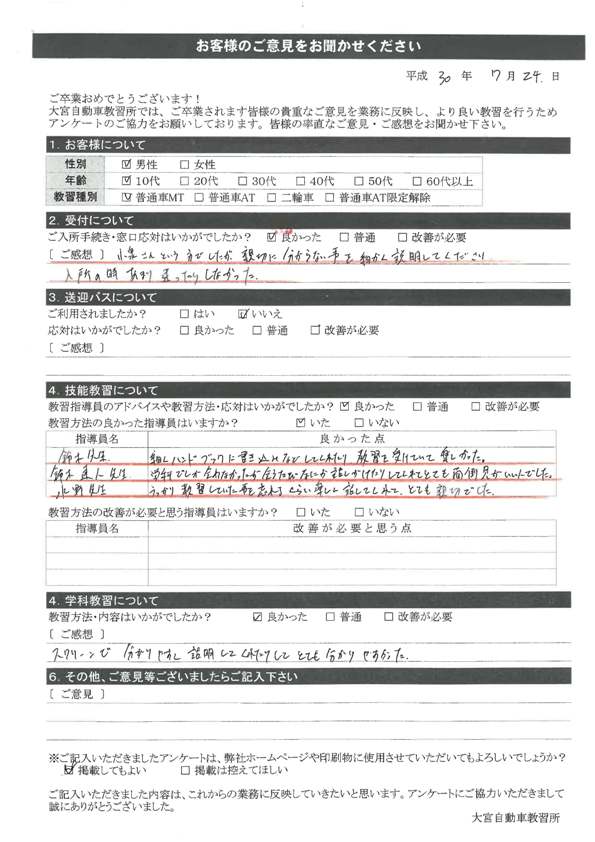 お客様のご意見をお聞かせください
平成 30 年 7月 24. 日
ご卒業おめでとうございます！
大宮自動車教習所では、ご卒業されます皆様の貴重なご意見を業務に反映し、より良い教習を行うため
アンケートのご協力をお願いしております。皆様の率直なご意見・ご感想をお聞かせ下さい。
1. お客様について
性別 ☑ 男性 □ 女性
年齢 ☑ 10代 □ 20代 □ 30代 □ 40代 □ 50代 □ 60代以上
教習種別 ☑ 普通車MT □ 普通車AT □ 二輪車 □ 普通車AT限定解除
2. 受付について
ご入所手続き・窓口応対はいかがでしたか？ ☑ 良かった □ 普通 □ 改善が必要
［ ご感想 ］ 小泉さんという方でしたが 親切に 分からない事を細かく説明してくださり
入所の時 あまり 迷ったりしなかった.
3. 送迎バスについて
ご利用されましたか？ □ はい ☑ いいえ
応対はいかがでしたか？ □ 良かった □ 普通 □ 改善が必要
［ ご感想 ］
4. 技能教習について
教習指導員のアドバイスや教習方法・応対はいかがでしたか？ ☑ 良かった □ 普通 □ 改善が必要
教習方法の良かった指導員はいますか？ ☑ いた □ いない
指導員名 良かった点
鈴木先生 ハンドブックに書き込みなどしてくれたり 教習を受けていて楽しかった.
鈴木 先生 学科でしか会わなかったが会うたびになにか話しかけたりしてくれてとても面倒見がいい人でした。
水野先生 うっかり教習していた事を忘れるくらい楽しく話してくれて、とても親切でした.
教習方法の改善が必要と思う指導員はいますか？ □ いた □ いない
指導員名 改善が必要と思う点
4. 学科教習について
教習方法・内容はいかがでしたか？ ☑ 良かった □ 普通 □ 改善が必要
［ ご感想 ］
スクリーンで 分かりやすく 説明してくれたりして とても 分かりやすかった.
6. その他、ご意見等ございましたらご記入下さい
［ ご意見 ］
※ご記入いただきましたアンケートは、弊社ホームページや印刷物に使用させていただいてもよろしいでしょうか？
☑ 掲載してもよい □ 掲載は控えてほしい
ご記入いただきました内容は、これからの業務に反映していきたいと思います。アンケートにご協力いただきまして
誠にありがとうございました。
大宮自動車教習所